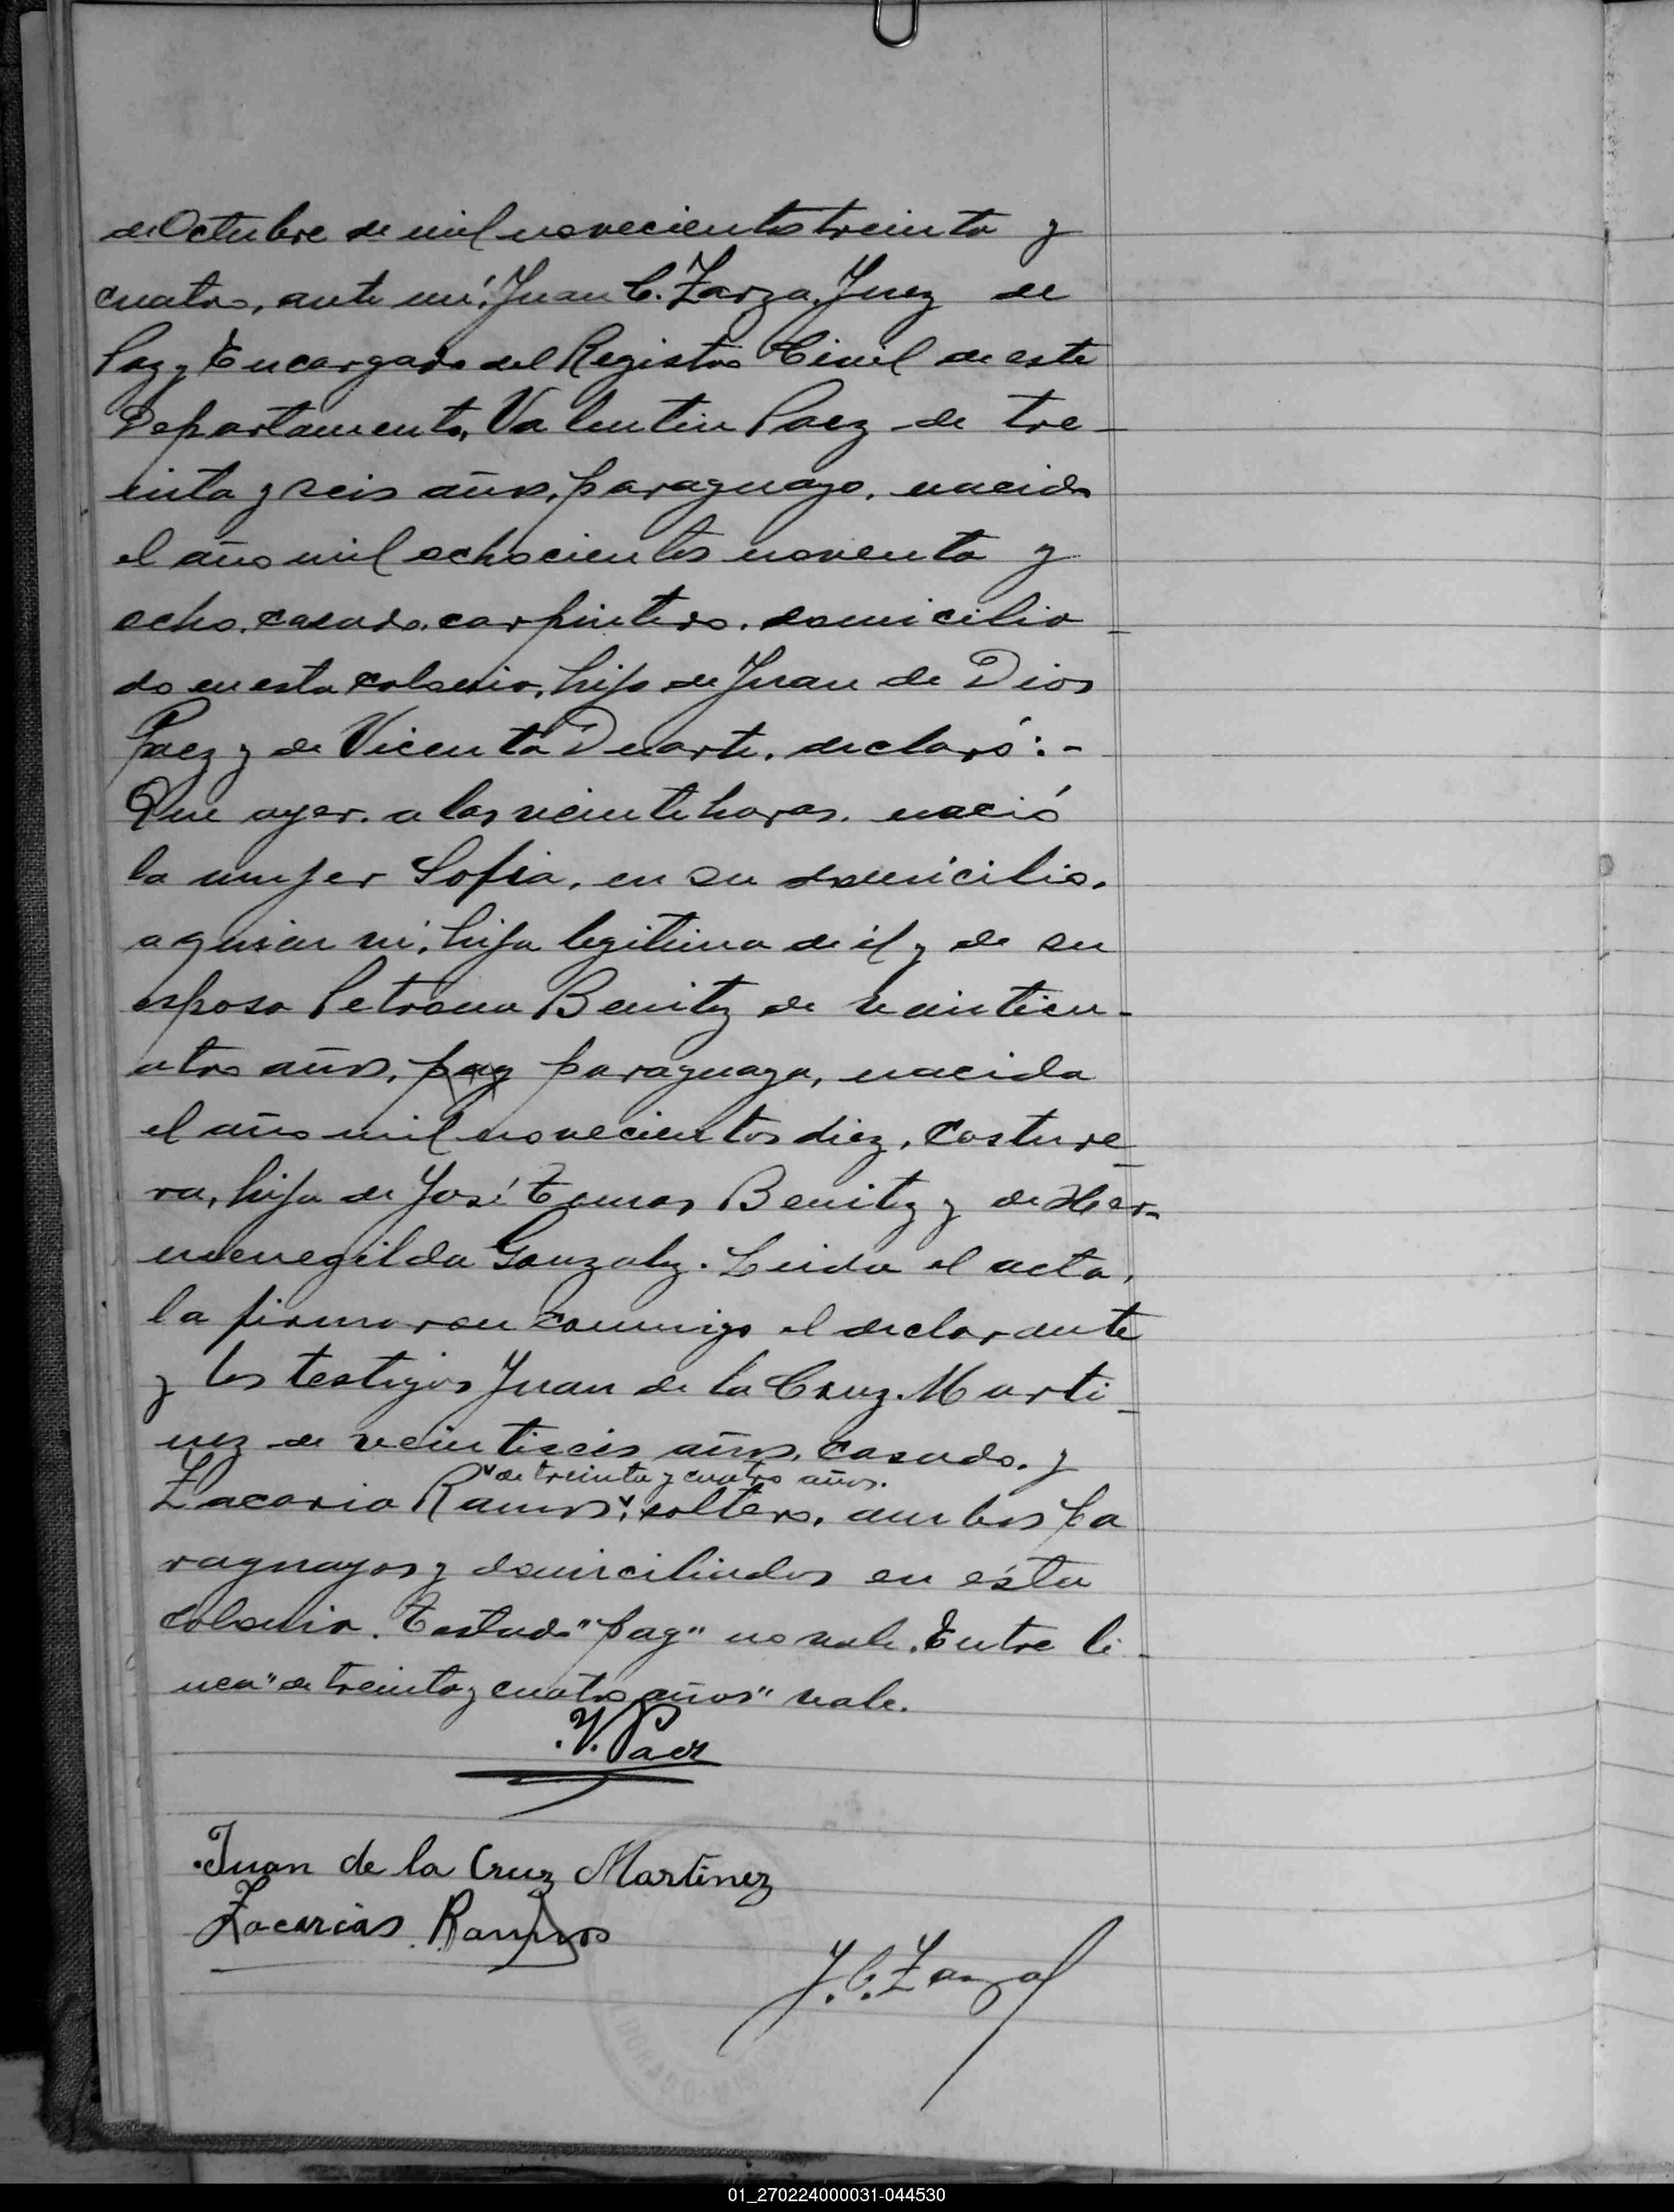 de Octubre de mil novecientos treinta y
cuatro, ante mí, Juan C. Zarza, Juez de
Paz y Encargado del Registro Civil de este
Departamento, Valentin Paez de tre-
inta y seis años, paraguayo, nacido
el año mil ochocientos noventa y
ocho, casado, carpintero, domicilia-
do en esta colonia, hijo de Juan de Dios
Paez y de Vicenta Duarte, declaró:-
Que ayer, a las veinte horas, nació
la mujer Sofia, en su domicilio,
a quien ví, hija legitima de él y de su
esposa Petrona Benitez de veinticu-
atro años, pag paraguaya, nacida
el año mil novecientos diez, costure-
ra, hija de José Tomas Benitez y de Her-
menegilda Gonzalez. Leida el acta,
la firmaron conmigo el declarante
y los testigos Juan de la Cruz Marti-
nez de veintiseis años, casado, y
de treinta y cuatro años.
Zacaria Ramos, soltero, ambos pa
raguayos y domiciliados en ésta
colonia. Testado "pag" no vale. Entre li-
nea "de treinta y cuatro años" vale.
V. Paez
Juan de la Cruz Martinez
Zacarias Ramos
J. C. Zarza
DORADO
01_270224000031-044530